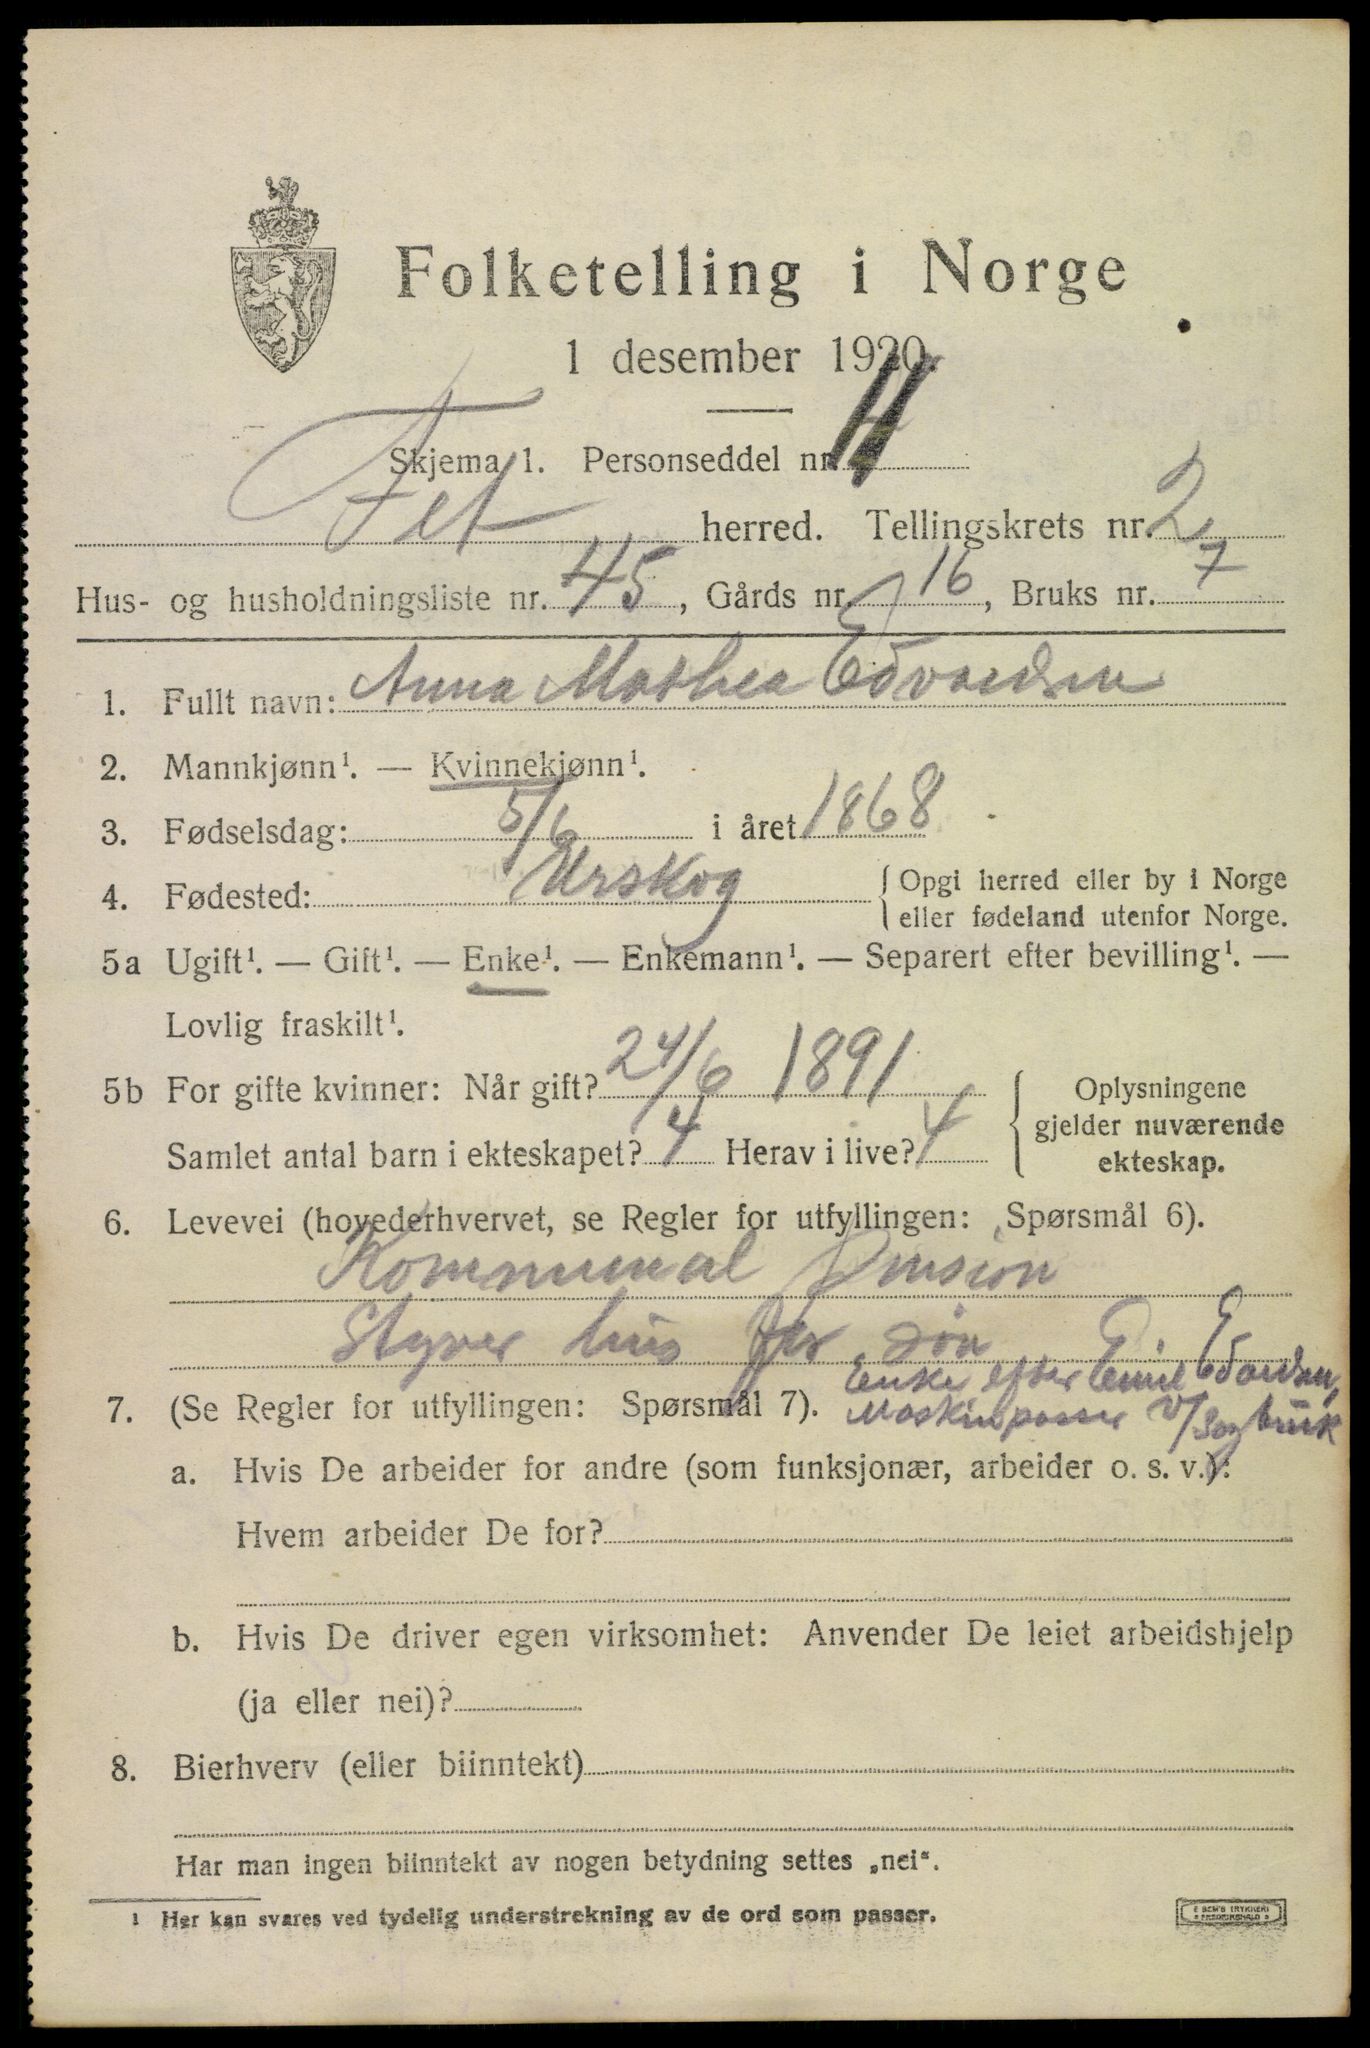 Folketelling i Norge
1 desember 1920.
Skjema 1. Personseddel nr.
Fet herred. Tellingskrets nr. 2
Hus- og husholdningsliste nr. 45, Gårds nr. 16, Bruks nr. 7
1. Fullt navn: Anna Mathea Edvardsen
2. Mannkjønn¹. — Kvinnekjønn¹.
3. Fødselsdag: 5/6 i året 1868
4. Fødested: Urskog { Opgi herred eller by i Norge
eller fødeland utenfor Norge.
5a Ugift¹. — Gift¹. — Enke¹. — Enkemann¹. — Separert efter bevilling¹. —
Lovlig fraskilt¹.
5b For gifte kvinner: Når gift? 24/6 1891
Samlet antal barn i ekteskapet? 4 Herav i live? 4
{ Oplysningene
gjelder nuværende
ekteskap.
6. Levevei (hovederhvervet, se Regler for utfyllingen: Spørsmål 6).
Kommunal Pension
Styrer hus for søn
Enke efter Emil Edvardsen,
Maskinpasser v/Sagbruk
7. (Se Regler for utfyllingen: Spørsmål 7).
a. Hvis De arbeider for andre (som funksjonær, arbeider o. s. v.):
Hvem arbeider De for?
b. Hvis De driver egen virksomhet: Anvender De leiet arbeidshjelp
(ja eller nei)?
8. Bierhverv (eller biinntekt)
Har man ingen biinntekt av nogen betydning settes „nei“.
¹ Her kan svares ved tydelig understrekning av de ord som passer.
E SEM'S TRYKKERI
FREDRIKSHALD